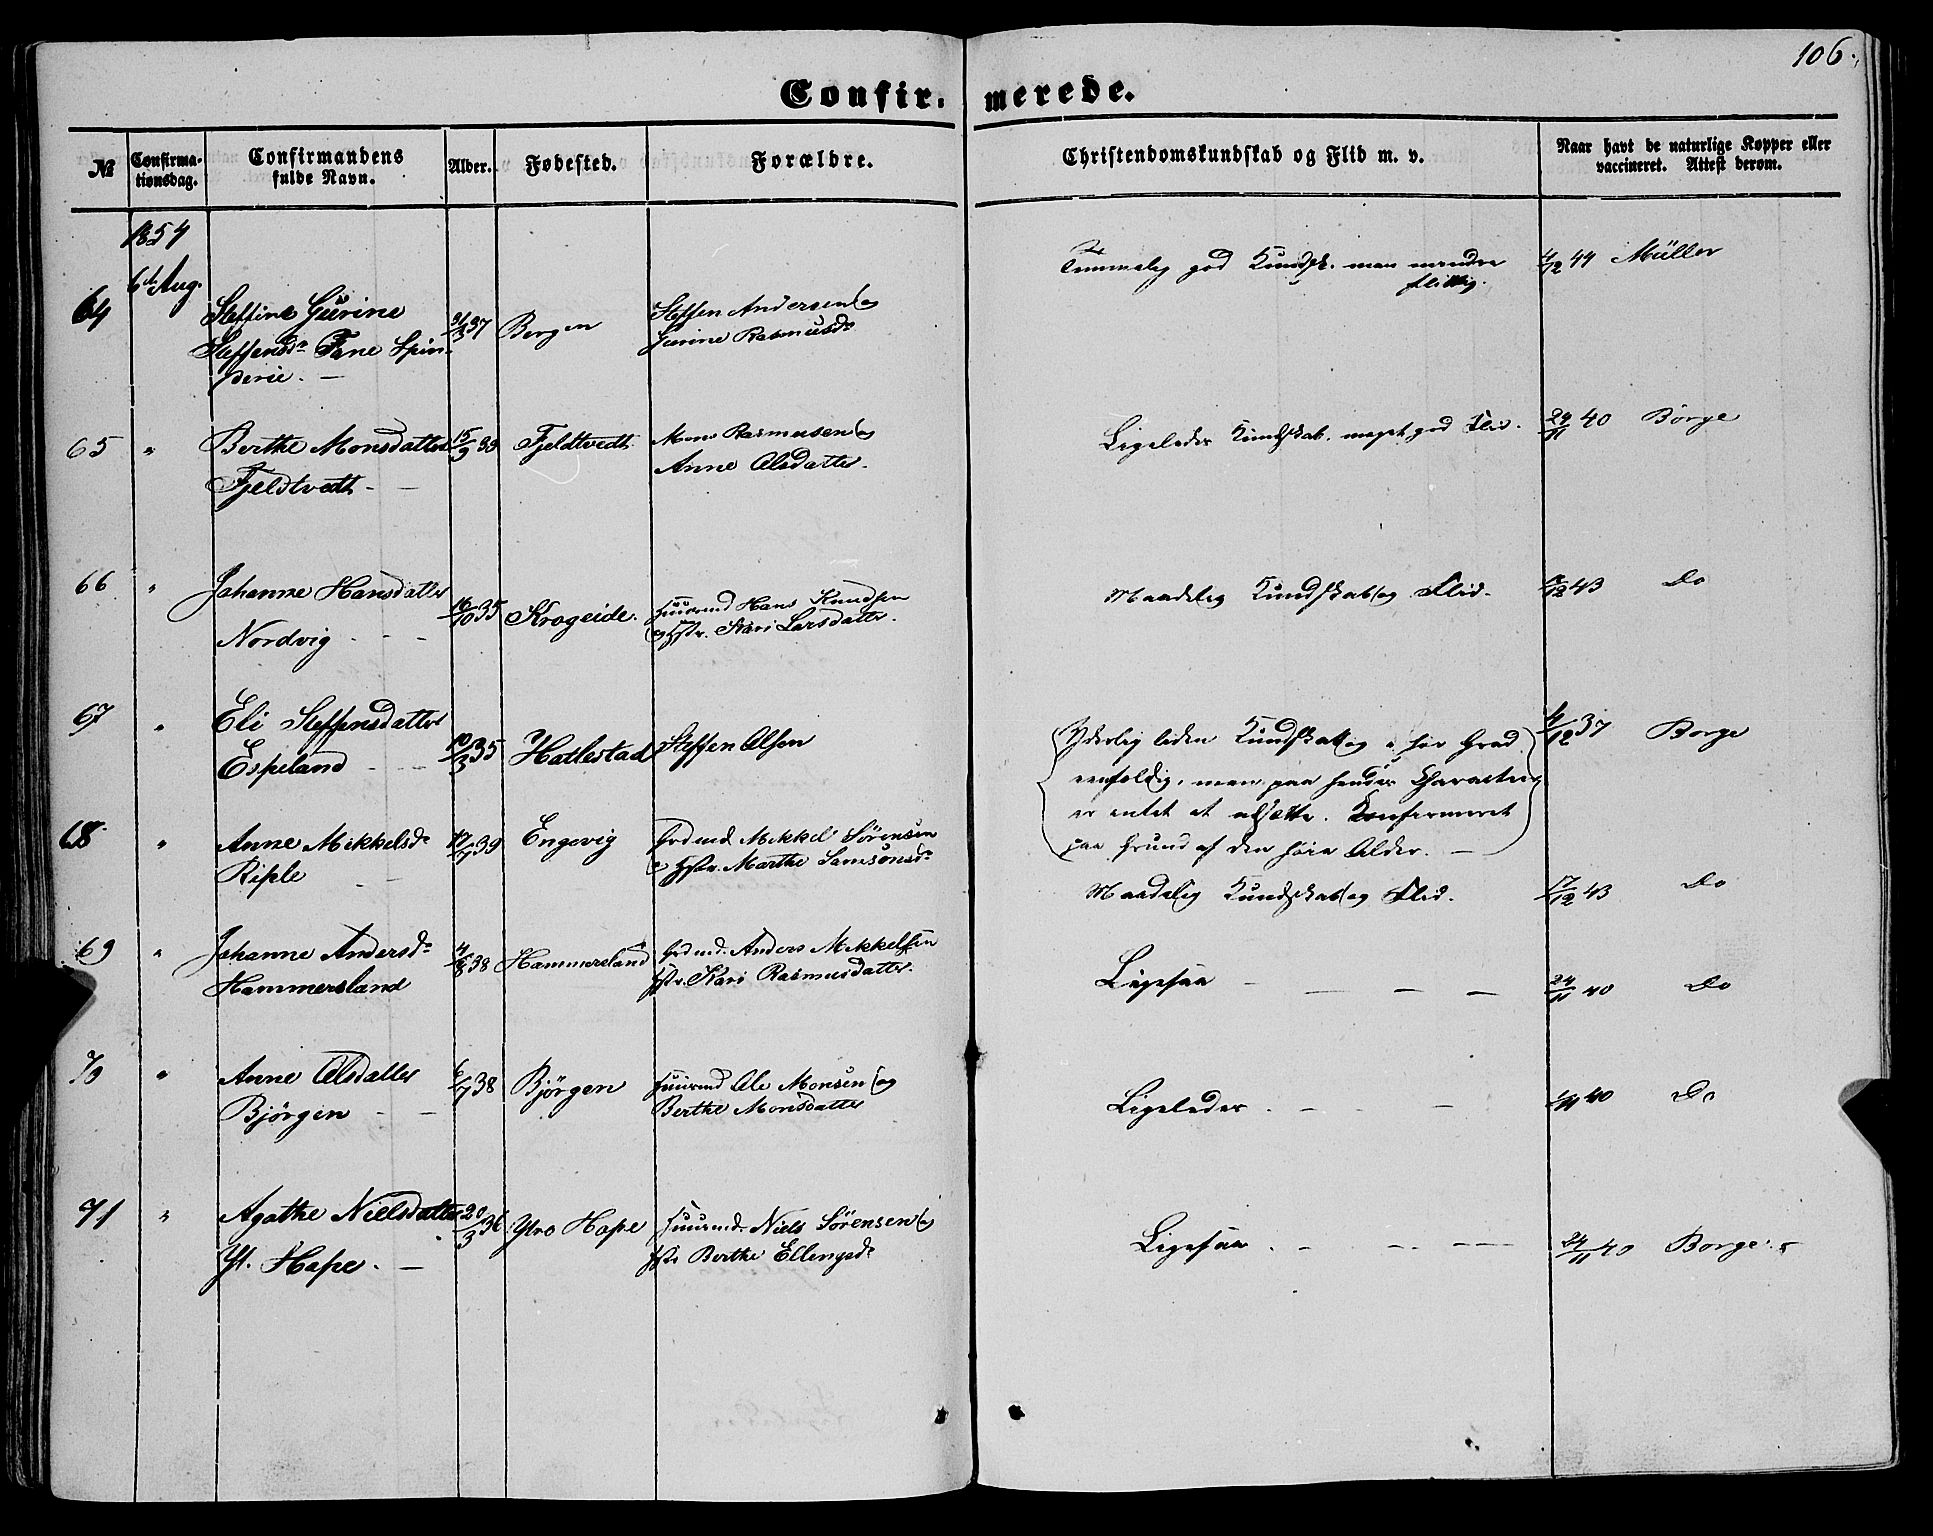 106.
Confir- merede.
№ Confirma-
tionsdag. Confirmandens
fulde Navn. Alder. Fødested. Forældre. Christendomskundskab og Flid m. v. Naar havt de naturlige Kopper eller
vaccineret. Attest derom.
1854
6te Aug.
64 Steffine Gurine
Steffensdr Fane Spin-
derie. —
37 Bergen
Steffen Andersen og
Gurine Rasmusdr
Temmelig god Kundsk. men mindre
flittig.
44 Müller
65 " Berthe Monsdatter
Fjeldtvedt — —
15/9 39 Fjeldtvedt
Mons Rasmusen og
Anne Olsdatter.
Ligeledes Kundskab. meget god Flid.
24/11 40 Børge
66 " Johanne Hansdatter
Nordvig — — —
16/10 35 Krogeide.
Huusmd Hans Knudsen
og Hstr. Kari Larsdatter.
Maadelig Kundskab og Flid.
43 Do
67 " Eli Steffensdatter
Espeland — —
10/3 35 Hatlestad
Steffen Olsen
Yderlig liden Kundskab og i høi Grad
eenfoldig, men paa hendes Character
er intet at udsætte. Konfirmeret
paa Grund af den høie Alder. —
37 Borge
68 " Anne Mikkelsdr
Riple —
39 Engevig
Grdmd. Mikkel Sørensen
og Hstr. Marthe Samsonsdr
Maadelig Kundskab og Flid.
17/12 43 Do
69 " Johanne Andersdr
Hammersland
4/8 38 Hammersland
Grdmd. Anders Mikkelsen
Hstr. Kari Rasmusdatter.
Ligesaa — — — —
24/11 40 Do
70 " Anne Olsdatter
Bjørgen — —
6/7 38 Bjørgen
Huusmd Ole Monsen og
Berthe Monsdatter
Ligeledes. — — —
40 Do
71 " Agathe Nielsdatter
Yt. Hope. —
20/3 36 Ytre Hope
Huusmd. Niels Sørensen og
Hstr Berthe Ellingsdr
Ligesaa. — — —
24/11 40 Borge.